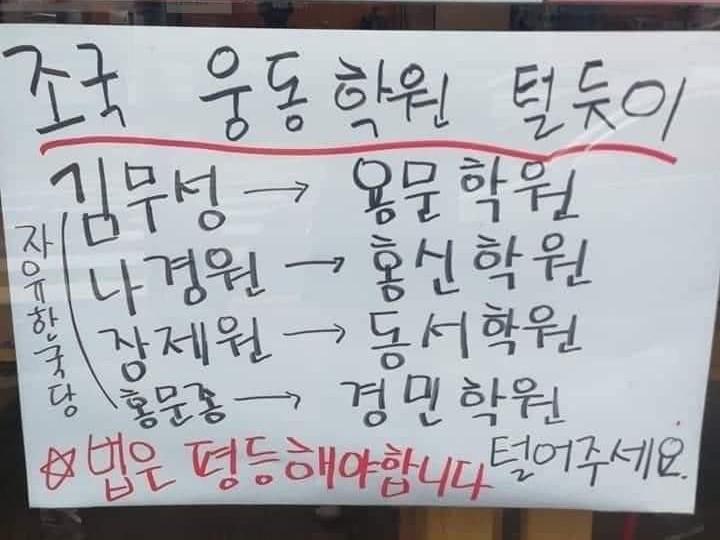 조국 웅동학원 털듯이
김무성 → 용문학원
나경원 → 홍신학원
장제원 → 동서학원
홍문종 → 경민학원
자유한국당
☆법은 평등해야합니다 털어주세요.